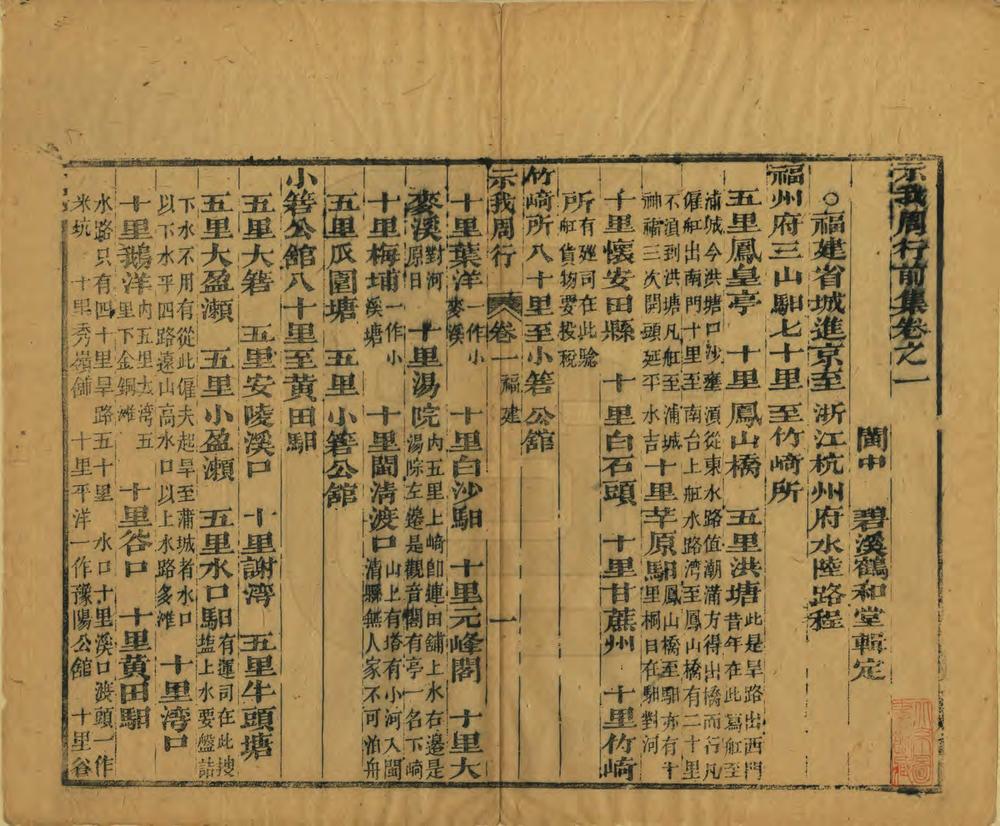 示我周行前集卷之一
閩中　碧溪鶴和堂輯定
○福建省城進京至　浙江杭州府水陸路程
福州府三山馹七十里至竹崎所
五里鳳皇亭　十里鳳山橋　五里洪塘此是旱路出西門昔年在此寫舡至
浦城今洪塘口沙壅　須從東水路值潮滿方得出橋而行凡
僱舡出南門十里至　南台上舡水路湾至鳳山橋有二十里
不須到洪塘凡舡至　浦城　鳳山橋至馹亦有十
神福三次開頭延平　水吉十里芋原馹里桐目在馹對河
十里懷安田縣　十里白石頭　十里甘蔗州　十里竹崎
所有廵司在此驗舡貨物要投稅
竹崎所八十里至小箬公舘
示我周行　卷一　福建　一
十里葉洋一作小麥溪　十里白沙馹　十里元峰閣　十里大
麥溪對河原日　十里湯院内五里上崎卽連田舖上水右邉是湯除左邉是觀音閣有亭一名下崎
十里梅埔一作小溪塘　十里閩清渡口山上有塔有小河入閩清縣無人家不可泊舟
五里瓜園塘　五里小箬公舘
小箬公舘八十里至黃田馹
五里大箬　五里安陵溪口　十里謝湾　五里牛頭塘
五里大盈瀨　五里小盈瀬　五里水口馹有運司在此捜塩上水要盤詰
下水不用有從此僱夫起旱至蒲城者水口
以下水平四路遠山高水口以上水路多灘　十里湾口
十里鵝洋内五里去湾五里下金鋼灘　十里谷口　十里黃田馹
水路只有四十里旱路五十里　水口十里溪口渡頭一作
米坑　十里秀嶺舖　十里平洋一作豫陽公舘　十里谷